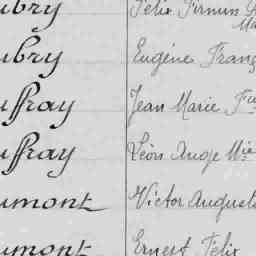 ubry Félix Firmin
ubry Eugène Franç
uffray Jean Marie
uffray Léon Ange Mie
umont Victor August
umont Ernest Félix